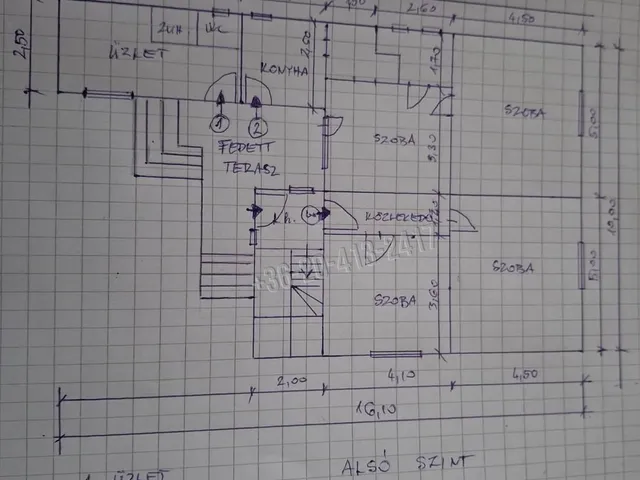 2,60
4,50
ZUH.
WC
ÜZLET
KONYHA
2,50
2,00
1,70
SZOBA
5,00
1
2
FEDETT
TERASZ
SZOBA
3,30
10,00
K.h.
KÖZLEKEDŐ
1,20
SZOBA
5,00
+36-20-413-2417
SZOBA
3,60
2,00
4,10
4,50
16,10
ALSÓ SZINT
1. ÜZLET